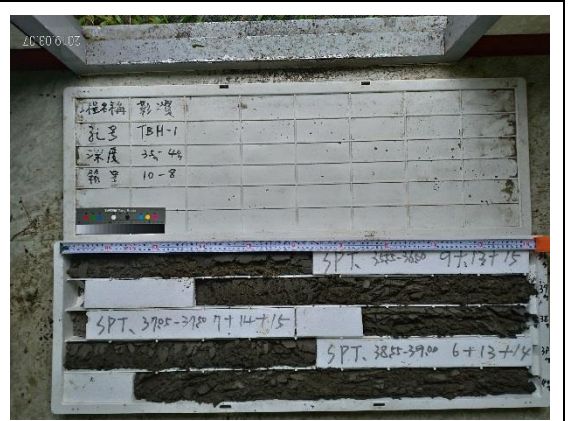 2019.03.07
工程名稱 彰濱
孔号 TBH-1
深度
箱号 10-8
SPT、3555-3600 9+13+15
SPT、3705-3750 7+14+15
SPT、3855-3900 6+13+14